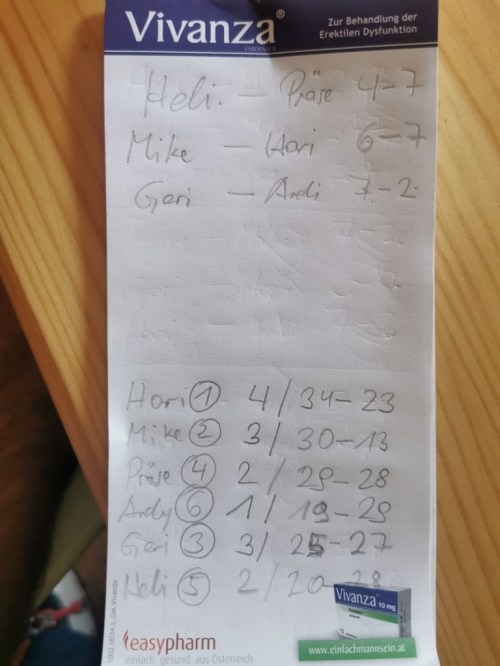 Vivanza®
VARDENAFIL
Zur Behandlung der
Erektilen Dysfunktion
Heli. – Präse 4–7
Mike – Hori 6–7
Geri – Ardi 7–2
Hori ① 4 / 34–23
Mike ② 3 / 30–13
Präse ④ 2 / 29–28
Ardy ⑥ 1 / 19–29
Geri ③ 3 / 25–27
Heli ⑤ 2 / 20–28
Vivanza 10 mg
easypharm
einfach. gesund. aus Österreich
www.einfachmannsein.at